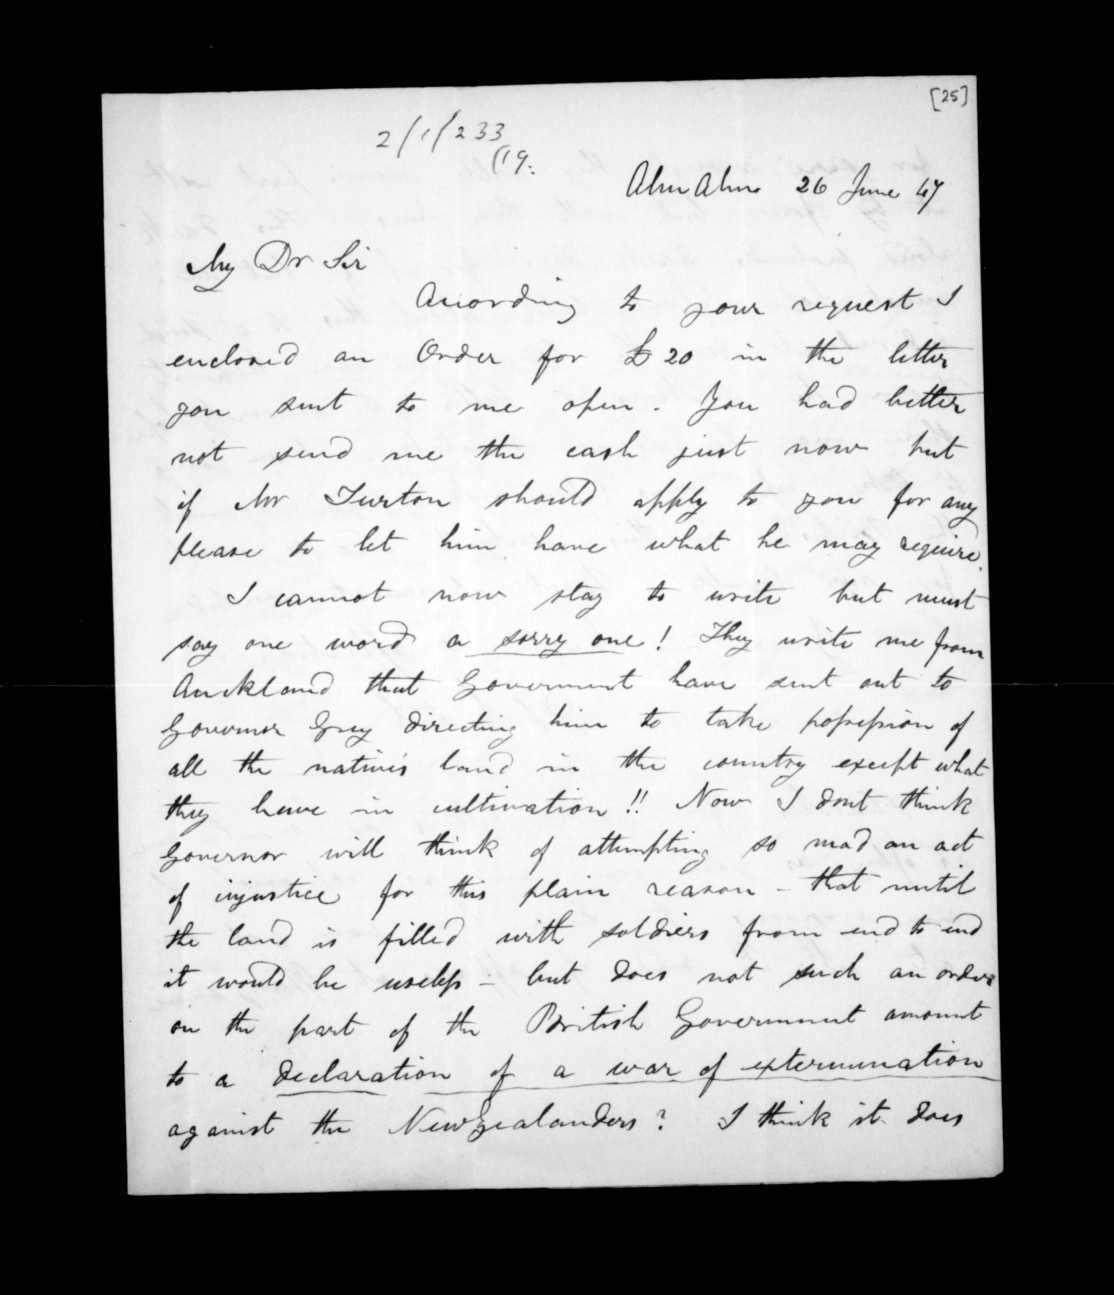 [25]
2/1/233
(19.
Ahu Ahu 26 June 47
My Dr Sir
According to your request I
enclosed an Order for £20 in the letter
you sent to me open. You had better
not send me the cash just now but
if Mr Turton should apply to you for any
please to let him have what he may require.
I cannot now stay to write but must
say one word a sorry one! They write me from
Auckland that Government have sent out to
Governor Grey directing him to take possession of
all the native's land in the country except what
they have in cultivation!! Now I dont think
Governor will think of attempting so mad an act
of injustice for this plain reason - that until
the land is filled with soldiers from end to end
it would be useless - but does not such an order
on the part of the British Government amount
to a declaration of a war of extermination
against the New Zealanders? I think it does